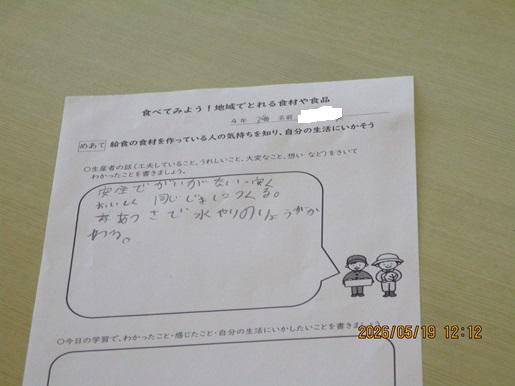 食べてみよう！地域でとれる食材や食品
4年 2番 名前
めあて 給食の食材を作っている人の気持ちを知り、自分の生活にいかそう
○生産者の話（工夫していること、うれしいこと、大変なこと、想い など）をきいて
わかったことを書きましょう。
おいしく 同じ
あつさで水やりのりょうがか
わる。
○今日の学習で、わかったこと・感じたこと・自分の生活にいかしたいことを書きましょう
2026/05/19 12:12